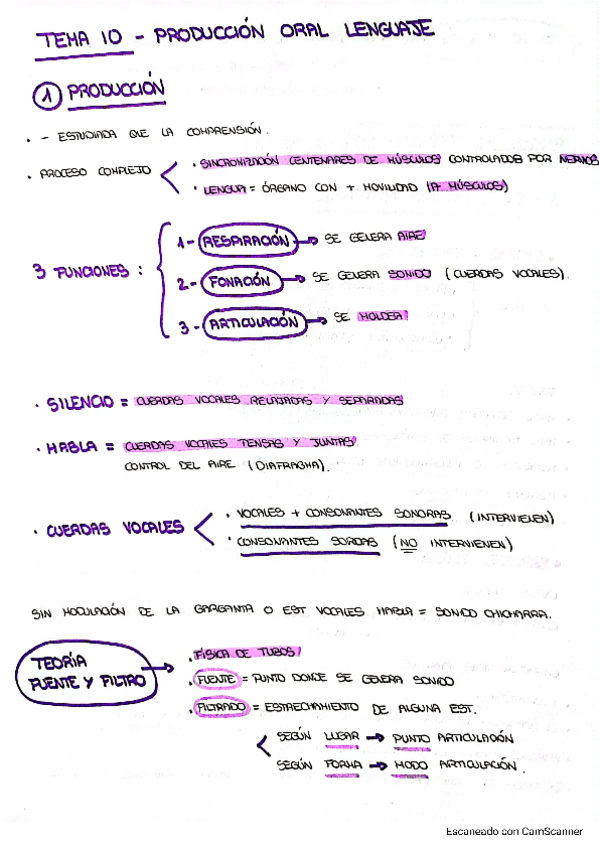 TEMA 10 - PRODUCCIÓN ORAL LENGUAJE
1 PRODUCCIÓN
· - ESTUDIADA QUE LA COMPRENSIÓN.
· PROCESO COMPLEJO
· SINCRONIZACIÓN CENTENARES DE MÚSCULOS CONTROLADOS POR NERVIOS
· LENGUA = ÓRGANO CON + MOVILIDAD (17 MÚSCULOS)
3 FUNCIONES :
1- RESPIRACIÓN → SE GENERA AIRE
2- FONACIÓN → SE GENERA SONIDO (CUERDAS VOCALES).
3- ARTICULACIÓN → SE MOLDEA
· SILENCIO = CUERDAS VOCALES RELAJADAS Y SEPARADAS
· HABLA = CUERDAS VOCALES TENSAS Y JUNTAS
CONTROL DEL AIRE (DIAFRAGMA).
· CUERDAS VOCALES
· VOCALES + CONSONANTES SONORAS (INTERVIENEN)
· CONSONANTES SORDAS (NO INTERVIENEN)
SIN MODULACIÓN DE LA GARGANTA O EST VOCALES HABLA = SONIDO CHICHARRA.
TEORÍA FUENTE Y FILTRO →
· FÍSICA DE TUBOS
· FUENTE = PUNTO DONDE SE GENERA SONIDO
· FILTRADO = ESTRECHAMIENTO DE ALGUNA EST.
SEGÚN LUGAR → PUNTO ARTICULACIÓN
SEGÚN FORMA → MODO ARTICULACIÓN.
Escaneado con CamScanner